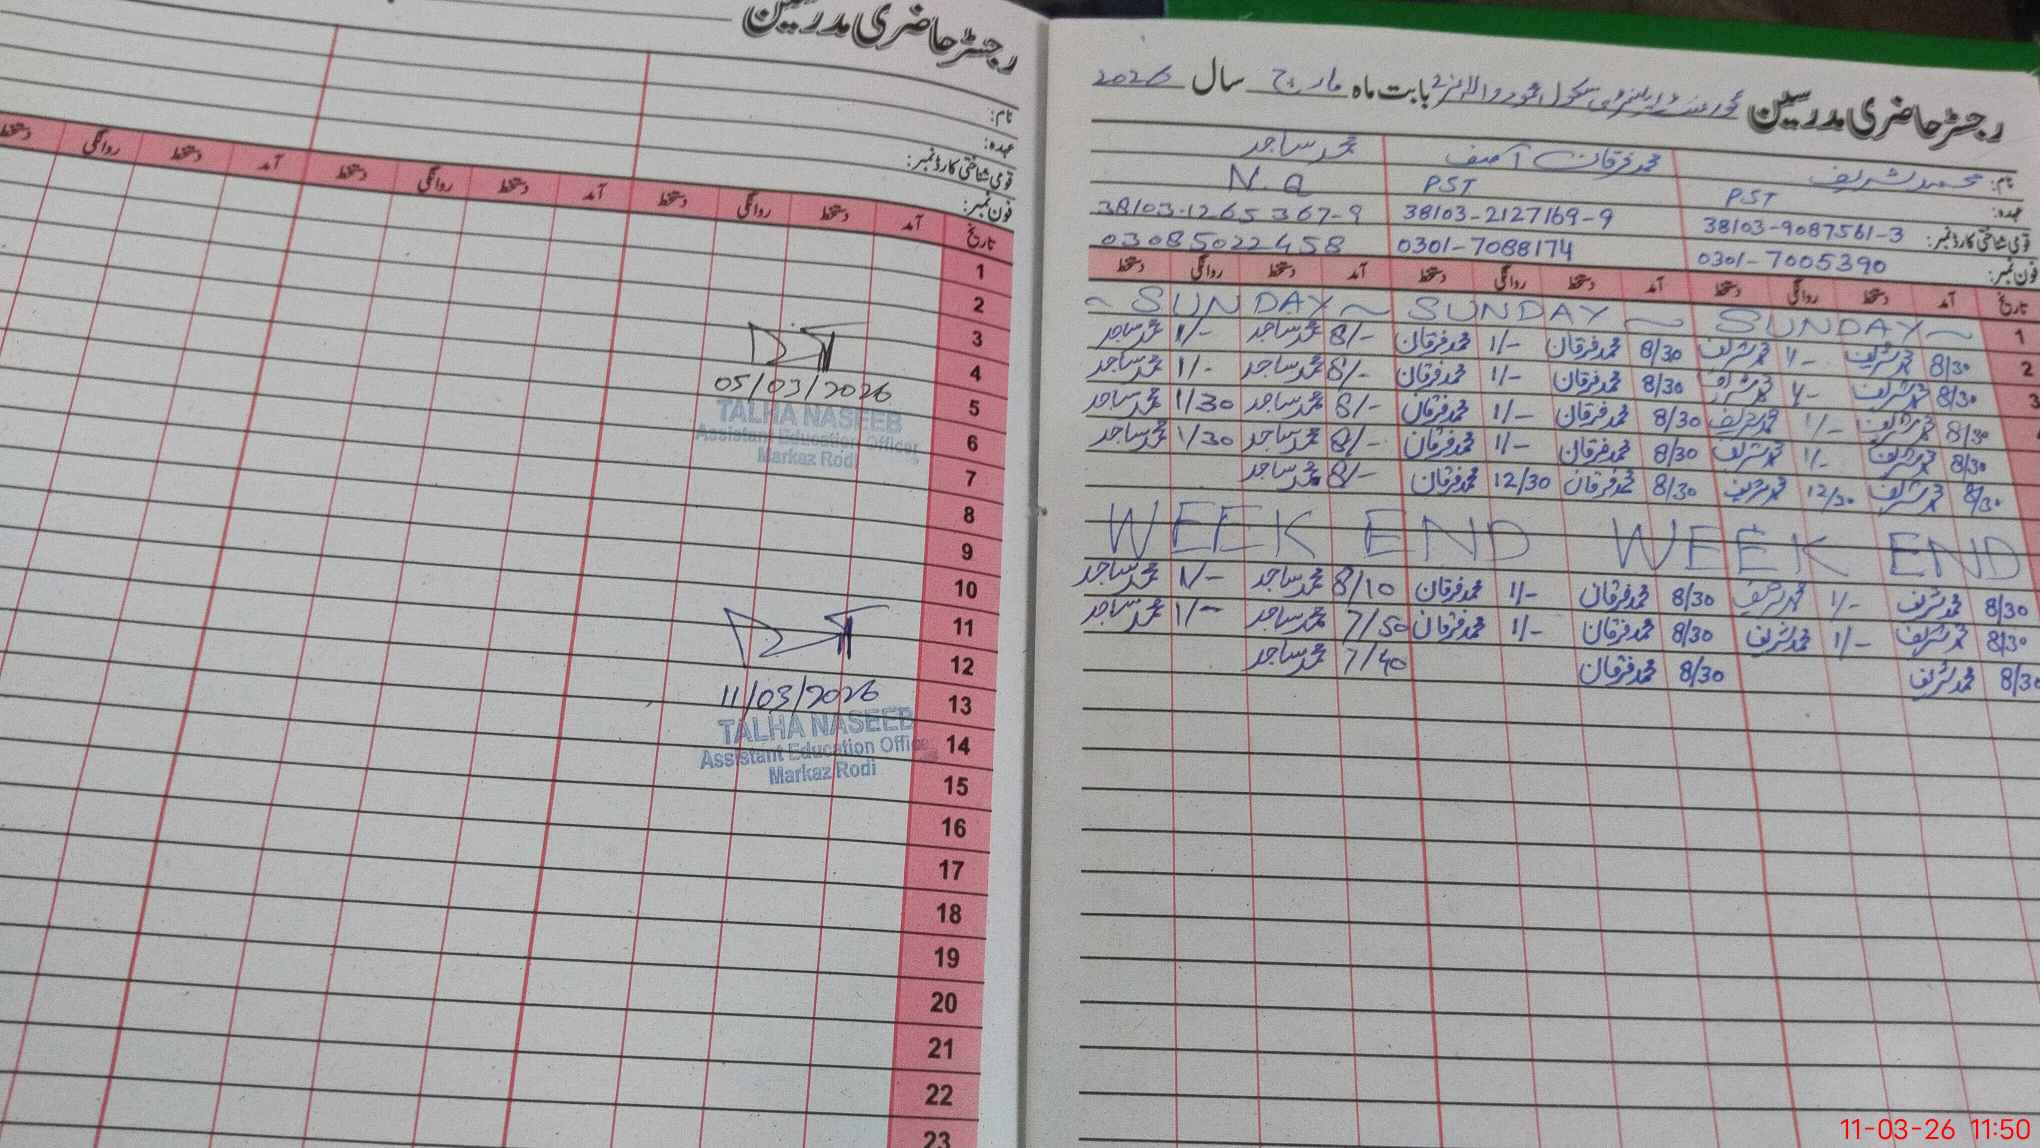 رجسٹر حاضری مدرسین
نام:
عہدہ:
قومی شناختی کارڈ نمبر:
فون نمبر:
تاریخ آمد دستخط روانگی دستخط آمد دستخط روانگی دستخط آمد دستخط روانگی دستخط
1
2
3
4
5
05/03/2026
TALHA NASEEB
Assistant Education Officer
Markaz Rodi
6
7
8
9
10
11
12
11/03/2026
TALHA NASEEB
Assistant Education Officer
Markaz Rodi
13
14
15
16
17
18
19
20
21
22
23
رجسٹر حاضری مدرسین بابت ماہ مارچ سال 2026
نام: محمد شریف محمد فرقان آصف محمد ساجد
عہدہ: PST PST N.Q
قومی شناختی کارڈ نمبر: 38103-9087561-3 38103-2127169-9 38103-1265367-9
فون نمبر: 0301-7005390 0301-7088174 03085022458
تاریخ آمد دستخط روانگی دستخط آمد دستخط روانگی دستخط آمد دستخط روانگی دستخط
1 ~ SUNDAY ~ SUNDAY ~ SUNDAY ~
2 8/30 محمد شریف 1/- محمد شریف 8/30 محمد فرقان 1/- محمد فرقان 8/- محمد ساجد 1/- محمد ساجد
3 8/30 محمد شریف 1/- محمد شریف 8/30 محمد فرقان 1/- محمد فرقان 8/- محمد ساجد 1/- محمد ساجد
8/30 محمد شریف 1/- محمد شریف 8/30 محمد فرقان 1/- محمد فرقان 8/- محمد ساجد 1/30 محمد ساجد
8/30 محمد شریف 1/- محمد شریف 8/30 محمد فرقان 1/- محمد فرقان 8/- محمد ساجد 1/30 محمد ساجد
8/30 محمد شریف 12/30 محمد شریف 8/30 محمد فرقان 12/30 محمد فرقان 8/- محمد ساجد
WEEK END WEEK END
8/30 محمد شریف 1/- محمد شریف 8/30 محمد فرقان 1/- محمد فرقان 8/10 محمد ساجد 1/- محمد ساجد
8/30 محمد شریف 1/- محمد شریف 8/30 محمد فرقان 1/- محمد فرقان 7/50 محمد ساجد 1/- محمد ساجد
8/30 محمد شریف 8/30 محمد فرقان 7/40 محمد ساجد
11-03-26 11:50